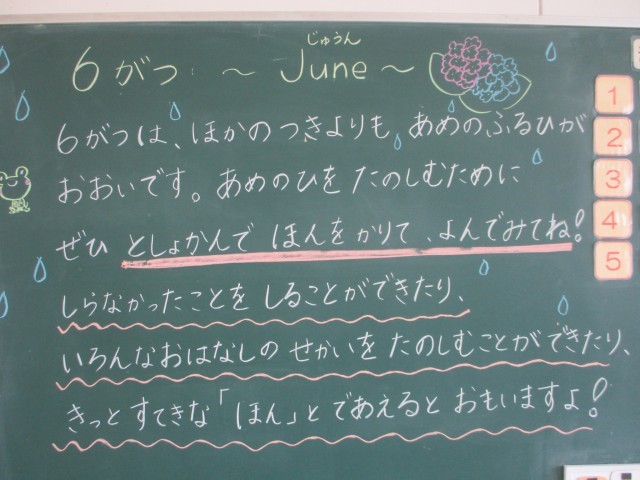 じゅうん
6がつ ～ June ～
6がつは、ほかのつきよりも あめのふるひが
おおいです。あめのひを たのしむために
ぜひ としょかんで ほんを かりて、よんでみてね!
しらなかったことを しることができたり、
いろんなおはなしの せかいを たのしむことができたり、
きっと すてきな「ほん」と であえると おもいますよ!
1
2
3
4
5